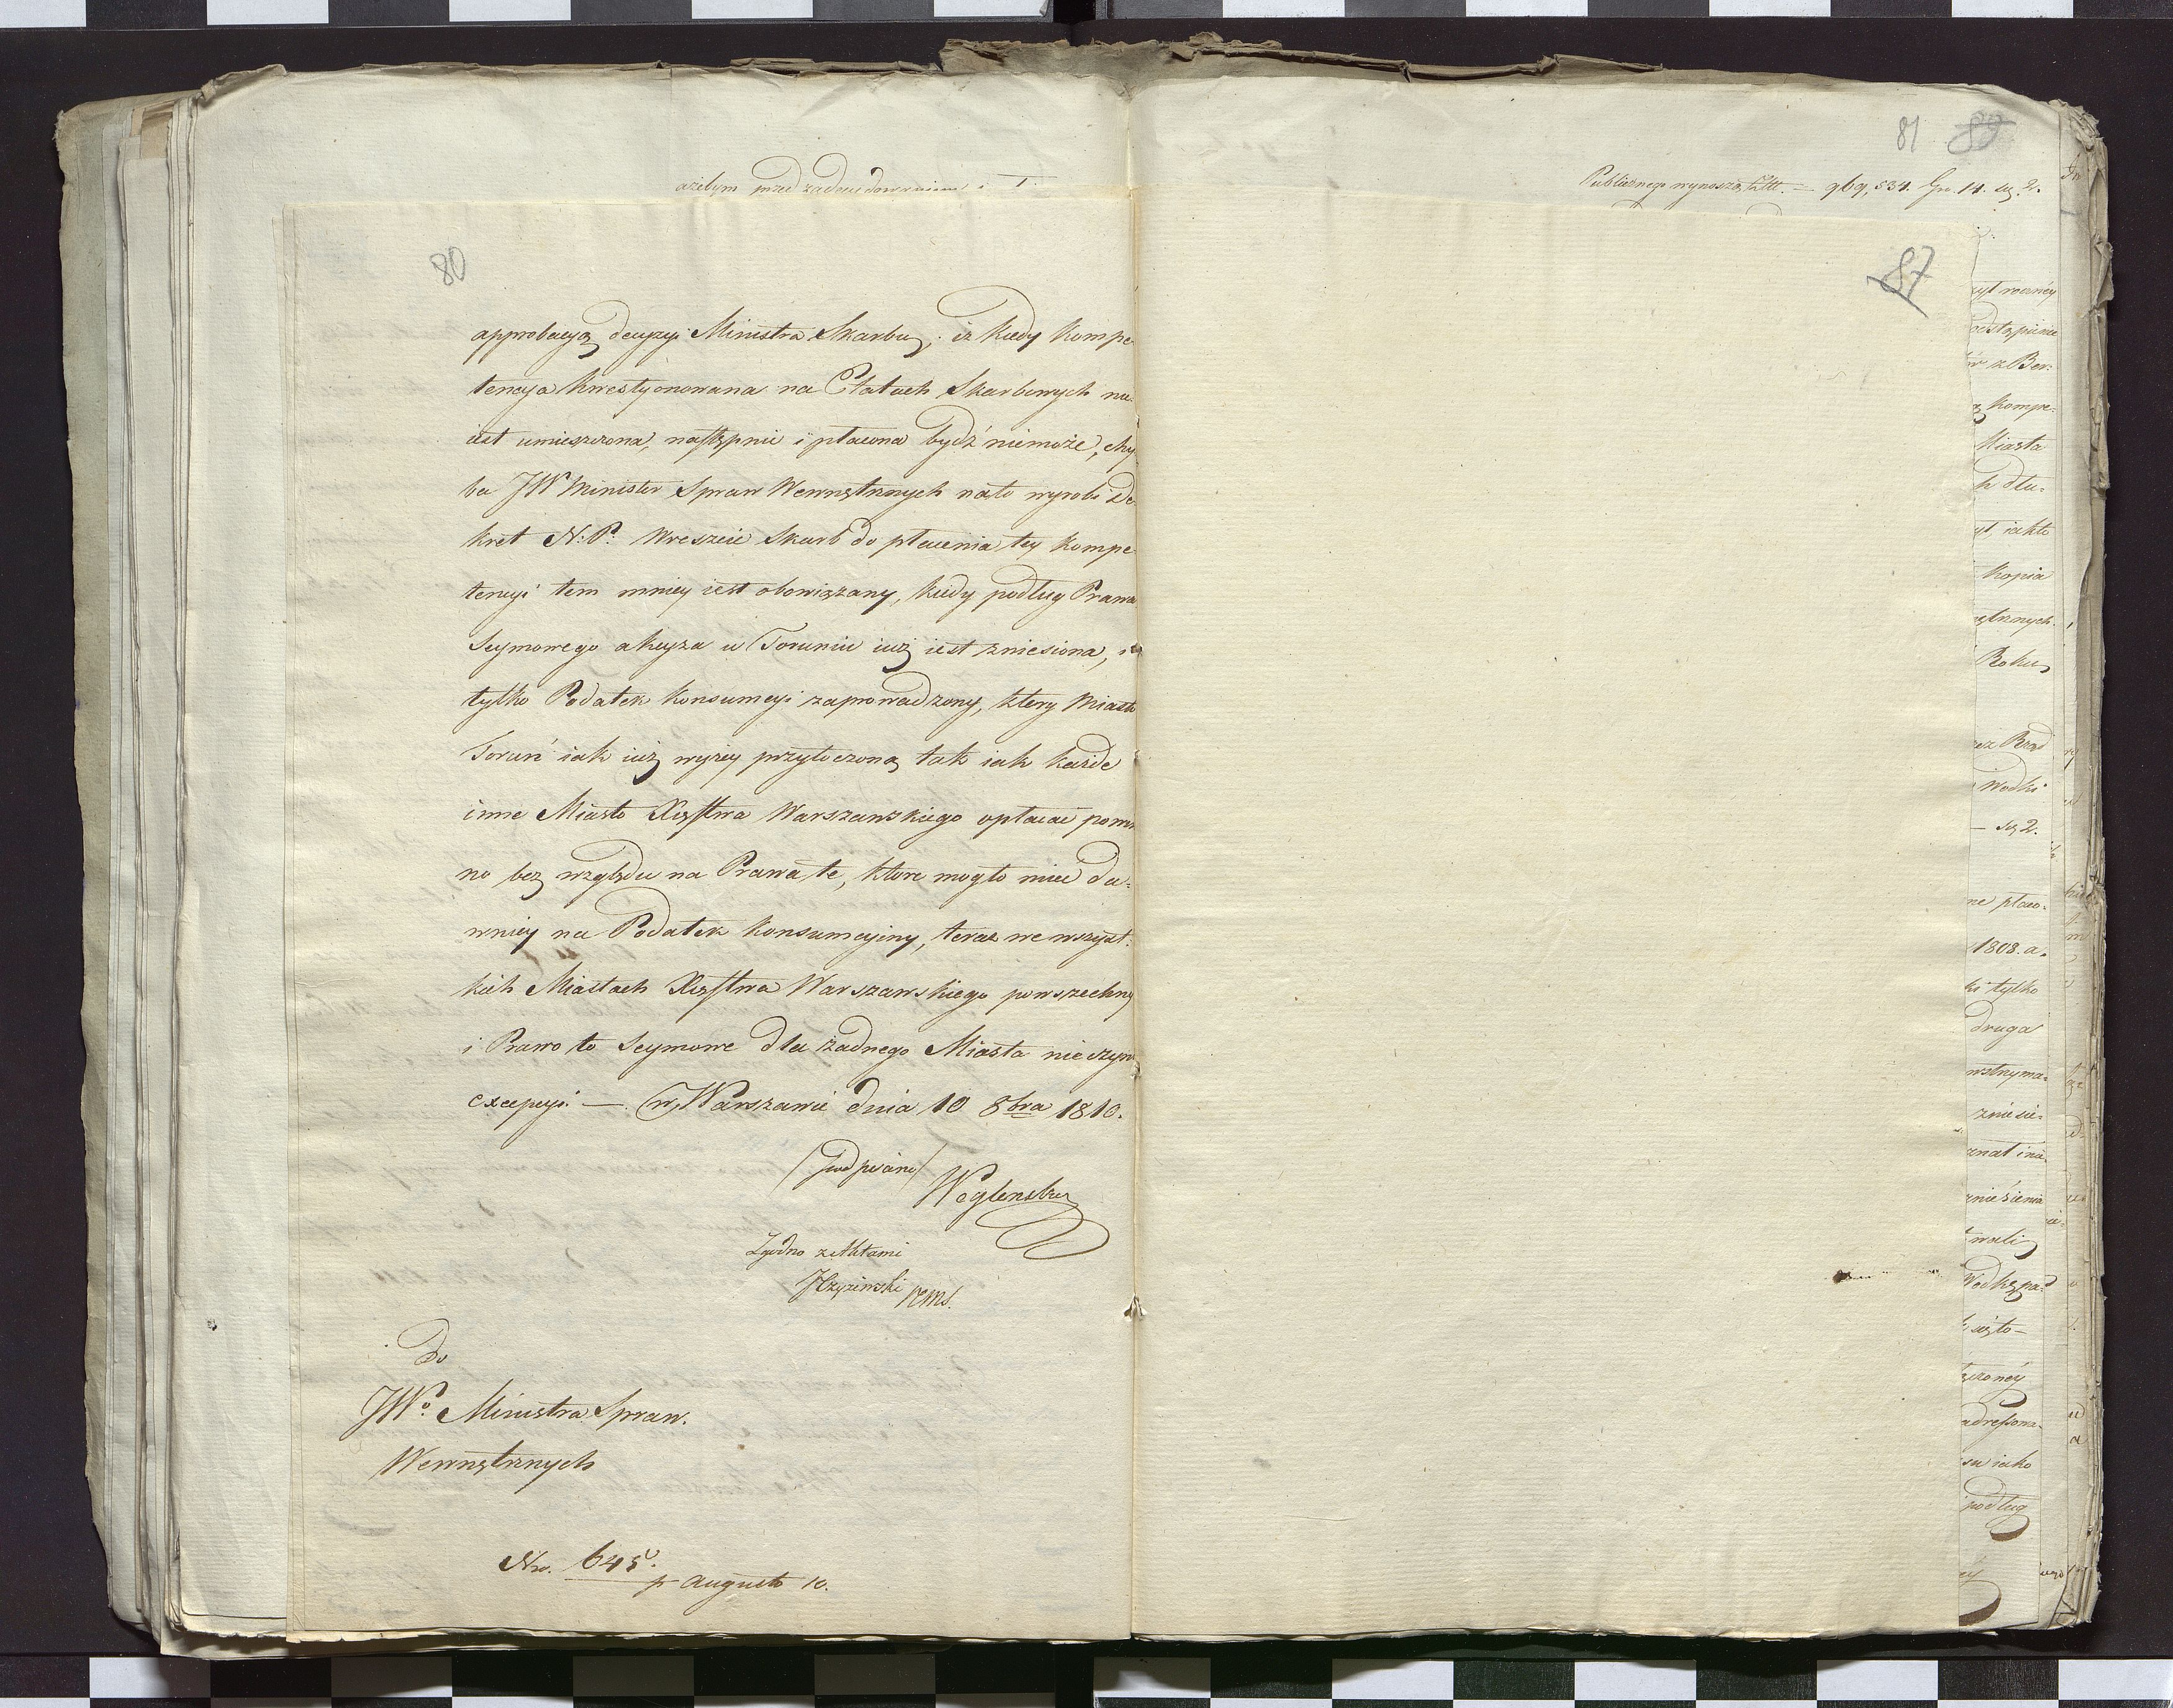 81 89
ażebym przed zadecydowaniem i
Publicznego wynoszą Złtt. — 969,534. Gro. 14. sz. 2.
80
87
approbacyą decyzyi Ministra Skarbu, iż kiedy kompe
tencya kwestyonowana na Etatach Skarbowych nie
iest umieszczona, następnie i płacona bydź niemoże, chy
ba JW Minister Spraw Wewnętrznych nato wyrobi De
kret N: P: Wreszcie Skarb do płacenia tey kompe
tencyi tem mniey iest obowiązany, kiedy podług Prawa
Seymowego akcyza w Toruniu iuż iest zniesiona, a
tylko Podatek konsumcyi zaprowadzony, ktory Miasto
Toruń iak iuż wyżey przytoczono, tak iak każde
inne Miasto Xięstwa Warszawskiego opłacać powin
no bez względu na Prawa te, ktore mogło mieć da=
wniey na Podatek konsumcyiny, teraz we wszyst=
kich Miastach Xięstwa Warszawskiego powszechny
i Prawo to Seymowe dla żadnego Miasta nie czyni
excepcyi. — w Warszawie dnia 10 8bra 1810.
/podpisano/ Węglenski
Zgodno z Aktami
do
JWo. Ministra Spraw.
Wewnętrznych
Nro. 645
p Augusto 10.
kompe=
Miasta
h dłu=
iakto
kopia
Roku
Wodki
— sz 2.
1808. a.
tylko
druga
wstrzyma=
zniesie=
zniesienia
iako
podług